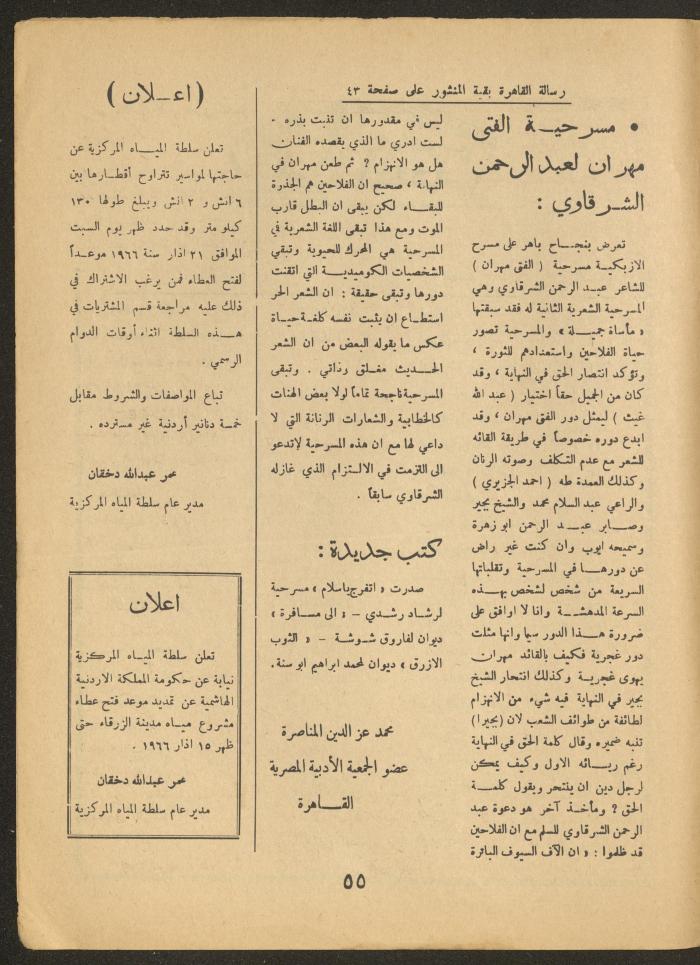 رسالة القاهرة بقية المنشور على صفحة ٤٣
• مسرحيـة الفتى
مهران لعبد الرحمن
الشرقاوي :
تعرض بنجـاح باهر على مسرح
الازبكيـة مسرحية ( الفتى مهران )
للشاعر عبـد الرحمن الشرقاوي وهي
المسرحية الشعرية الثانية له فقد سبقتها
« مأساة جميـلة » والمسرحية تصور
حياة الفلاحين واستعدادهم للثورة ،
وتؤكد انتصار الحق في النهاية ، وقد
كان من الجميل حقاً اختيار ( عبد الله
غيث ) ليمثل دور الفتى مهران ، وقد
ابدع دوره خصوصاً في طريقة القائه
للشعر مع عدم التكلف وصوته الرنان
وكذلك العمدة طه ( احمد الجزيري )
والراعي عبد السلام محمد والشيخ بجير
وصـابر عبـد الرحمن ابو زهرة
وسميحه ايوب وان كنت غير راض
عن دورهـا في المسرحية وتقلباتها
السريعة من شخص لشخص بهـذه
السرعة المدهشـة وانا لا اوافق على
ضرورة هـذا الدور سيما وانها مثلت
دور غجرية فكيف بالقائد مهران
يهوى غجريـة وكذلك انتحار الشيخ
بجير في النهاية فيه شيء من الانهزام
لطائفة من طوائف الشعب لان (بجيرا)
تنبه ضميره وقال كلمة الحق في النهاية
رغم ريـائه الاول وكيف يمكن
لرجل دين ان ينتحر ويقول كلمـة
الحق ؟ ومأخـذ آخر هو دعوة عبد
الرحمن الشرقاوي للسلم مع ان الفلاحين
قد ظلموا : « ان الآف السيوف الباترة
ليس في مقدورها ان تنبت بذره .
لست ادري ما الذي يقصده الفنان
هل هو الانهزام ؟ ثم طعن مهران في
النهاية ، صحيح ان الفلاحين هم الجذرة
للبقـاء لكن يبقى ان البطل قارب
الموت ومع هذا تبقى اللغة الشعرية في
المسرحية هي المحرك للحيوية وتبقي
الشخصيات الكوميديـة التي اتقنت
دورها وتبقى حقيقة : ان الشعر الحر
استطـاع ان يثبت نفسه كلغـة حيـاة
عكس ما يقوله البعض من ان الشعر
الحـديث مغـلق رذاتي . وتبقى
المسرحية ناجحة تماماً لولا بعض الهنات
كالخطابية والشعارات الرنانة التي لا
داعي لها مع ان هذه المسرحية لاتدعو
الى التزمت في الالـتزام الذي غازله
الشرقاوي سابقاً .
كتب جديدة :
صدرت « اتفرج ياسلام » مسرحية
لرشاد رشدي – « الى مسافرة »
ديوان لفاروق شـوشة – « الثوب
الازرق » ديوان لمحمد ابراهيم ابو سنة .
محمد عز الدين المناصرة
عضو الجمعية الأدبية المصرية
القـاهرة
( اعـلان )
تعلن سلطة الميـاه المركزية عن
حاجتها لمواسير تتراوح أقطـارها بين
٦ انش و ٢ انش ويبلغ طولها ١٣٠
كيلو متر وقد حدد ظهر يوم السبت
الموافق ٢١ اذار سنة ١٩٦٦ موعـداً
لفتح العطاء فمن يرغب الاشتراك في
ذلك عليه مراجعة قسم المشتريات في
هـذه السلطة اثناء أوقات الدوام
الرسمي .
تباع المواصفات والشروط مقابل
خمسة دنانير أردنية غير مسترده .
عمر عبدالله دخقان
مدير عام سلطة المياه المركزية
اعلان
تعلن سلطة الميـاه المركزية
نيابة عن حكومة المملكة الاردنية
الهاشمية عن تمديد موعد فتح عطاء
مشروع ميـاه مدينة الزرقاء حتى
ظهر ١٥ اذار ١٩٦٦ .
عمر عبدالله دخقان
مدير عام سلطة المياه المركزية
٥٥